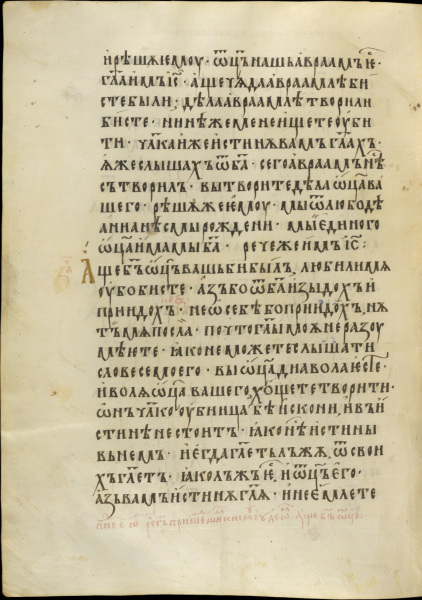 и рѣшѫ ѥмоу · ѿц҃ь нашь авраамъ ѥ҃ ·
гл҃а имъ іс҃ · аще чѧда авраамлѣ би
сте были · дѣла авраамлѣ творили
бисте · нинѣ же мене ищете оуби
ти · чл҃ка иже истинѫ вамъ гл҃ахъ ·
ѭже слышахъ ѿ ба҃ · сего авраамъ нѣ҃
сътворилъ · вы творите дѣла ѿц҃а ва
шего · рѣшѫ же ѥмоу · мы ѿ любодѣ
аниа нѣсмы рождени · мы единого
ѿц҃а имамы ба҃ · рече же имъ іс҃ :
Аще бъ҃ ѿц҃ь вашь би былъ любили мѧ
оубо бисте · азъ бо ѿ ба҃ изыдохъ и
приидохъ · не о себѣ бо приидохъ нѫ
тъ мѧ посла · почто гл҃ы моѧ не разоу
мѣете · ꙗко не можете слышати
словесе моего · вы ѿц҃а диавола есте ·
и волѧ ѿц҃а вашего хощете творити ·
ѡнъ чл҃коубиица бѣ искони и въ и
стинѣ не стоитъ · ꙗко нѣ истины
въ немъ · и егда гл҃етъ лъжѫ ѿ свои
хъ гл҃етъ · ꙗко лъжъ ѥ҃ и ѿц҃ъ его ·
азъ вамъ истинѫ гл҃ѧ · и не емлете